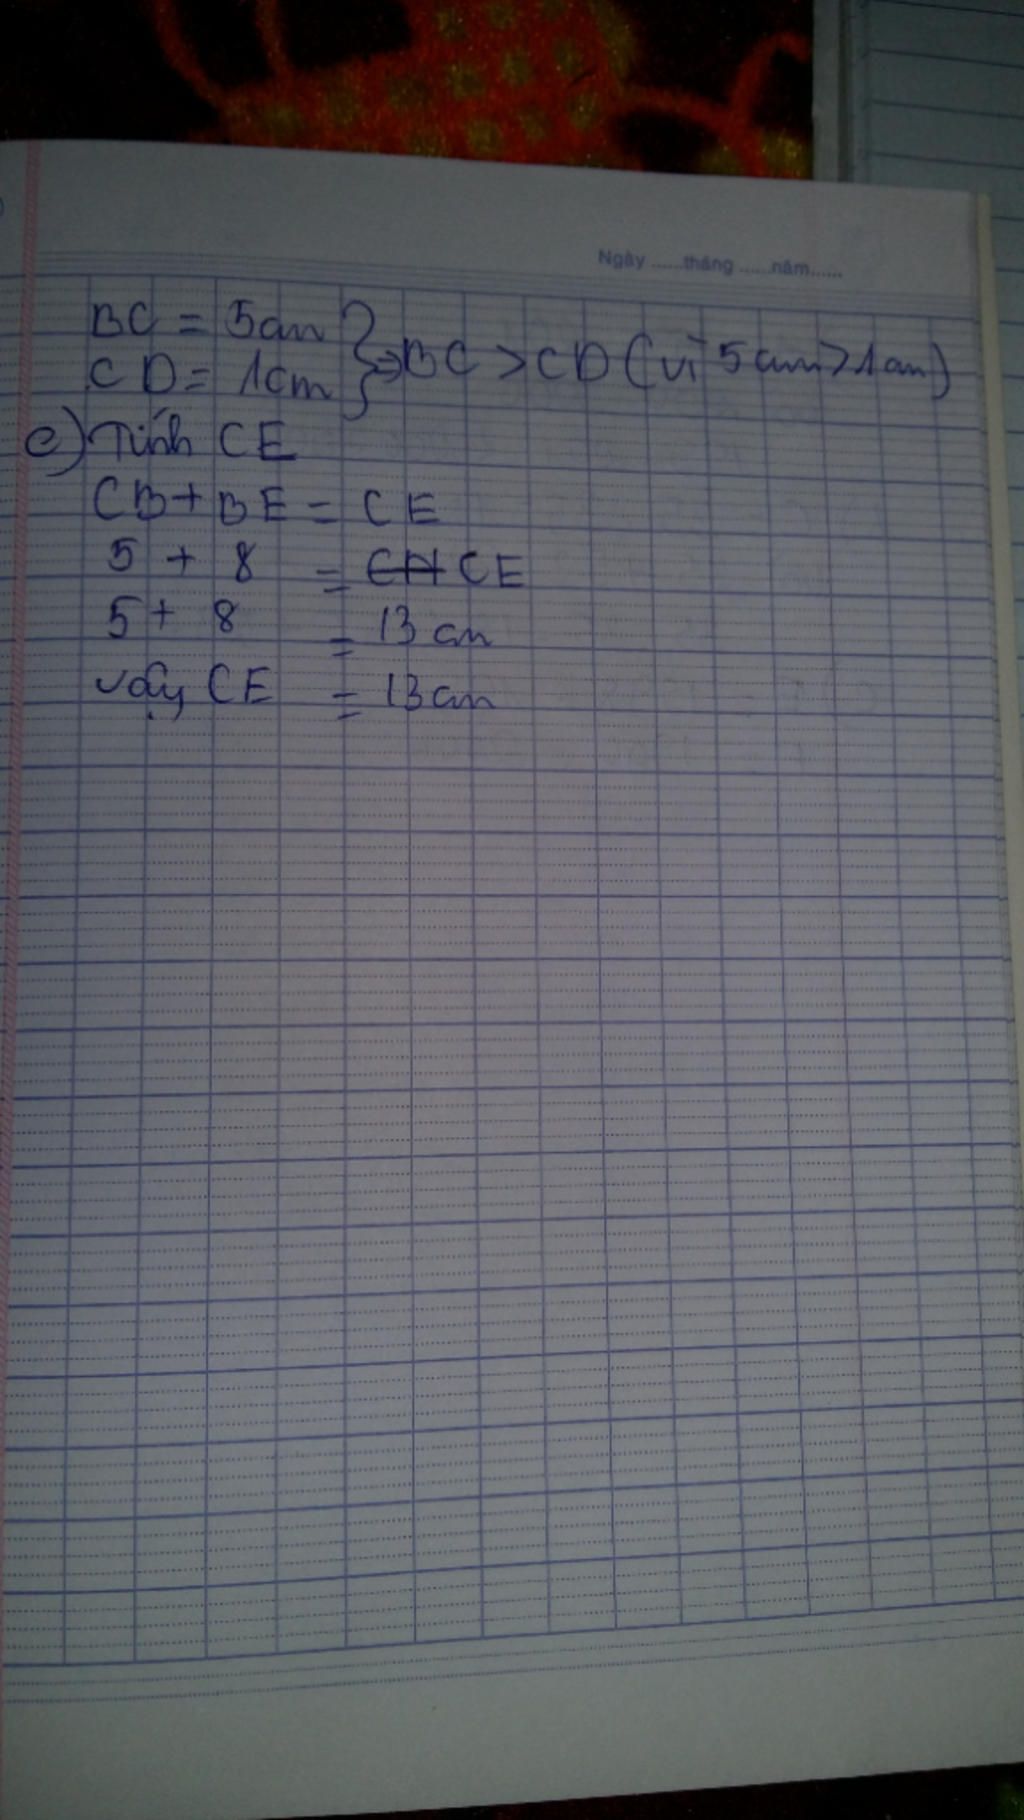 Ngày ......tháng ......năm......
BC = 5cm } => BC > CD (vì 5cm > 1cm)
CD = 1cm
e) Tính CE
CB + BE = CE
5 + 8 = CH CE
5 + 8 = 13 cm
vậy CE = 13 cm